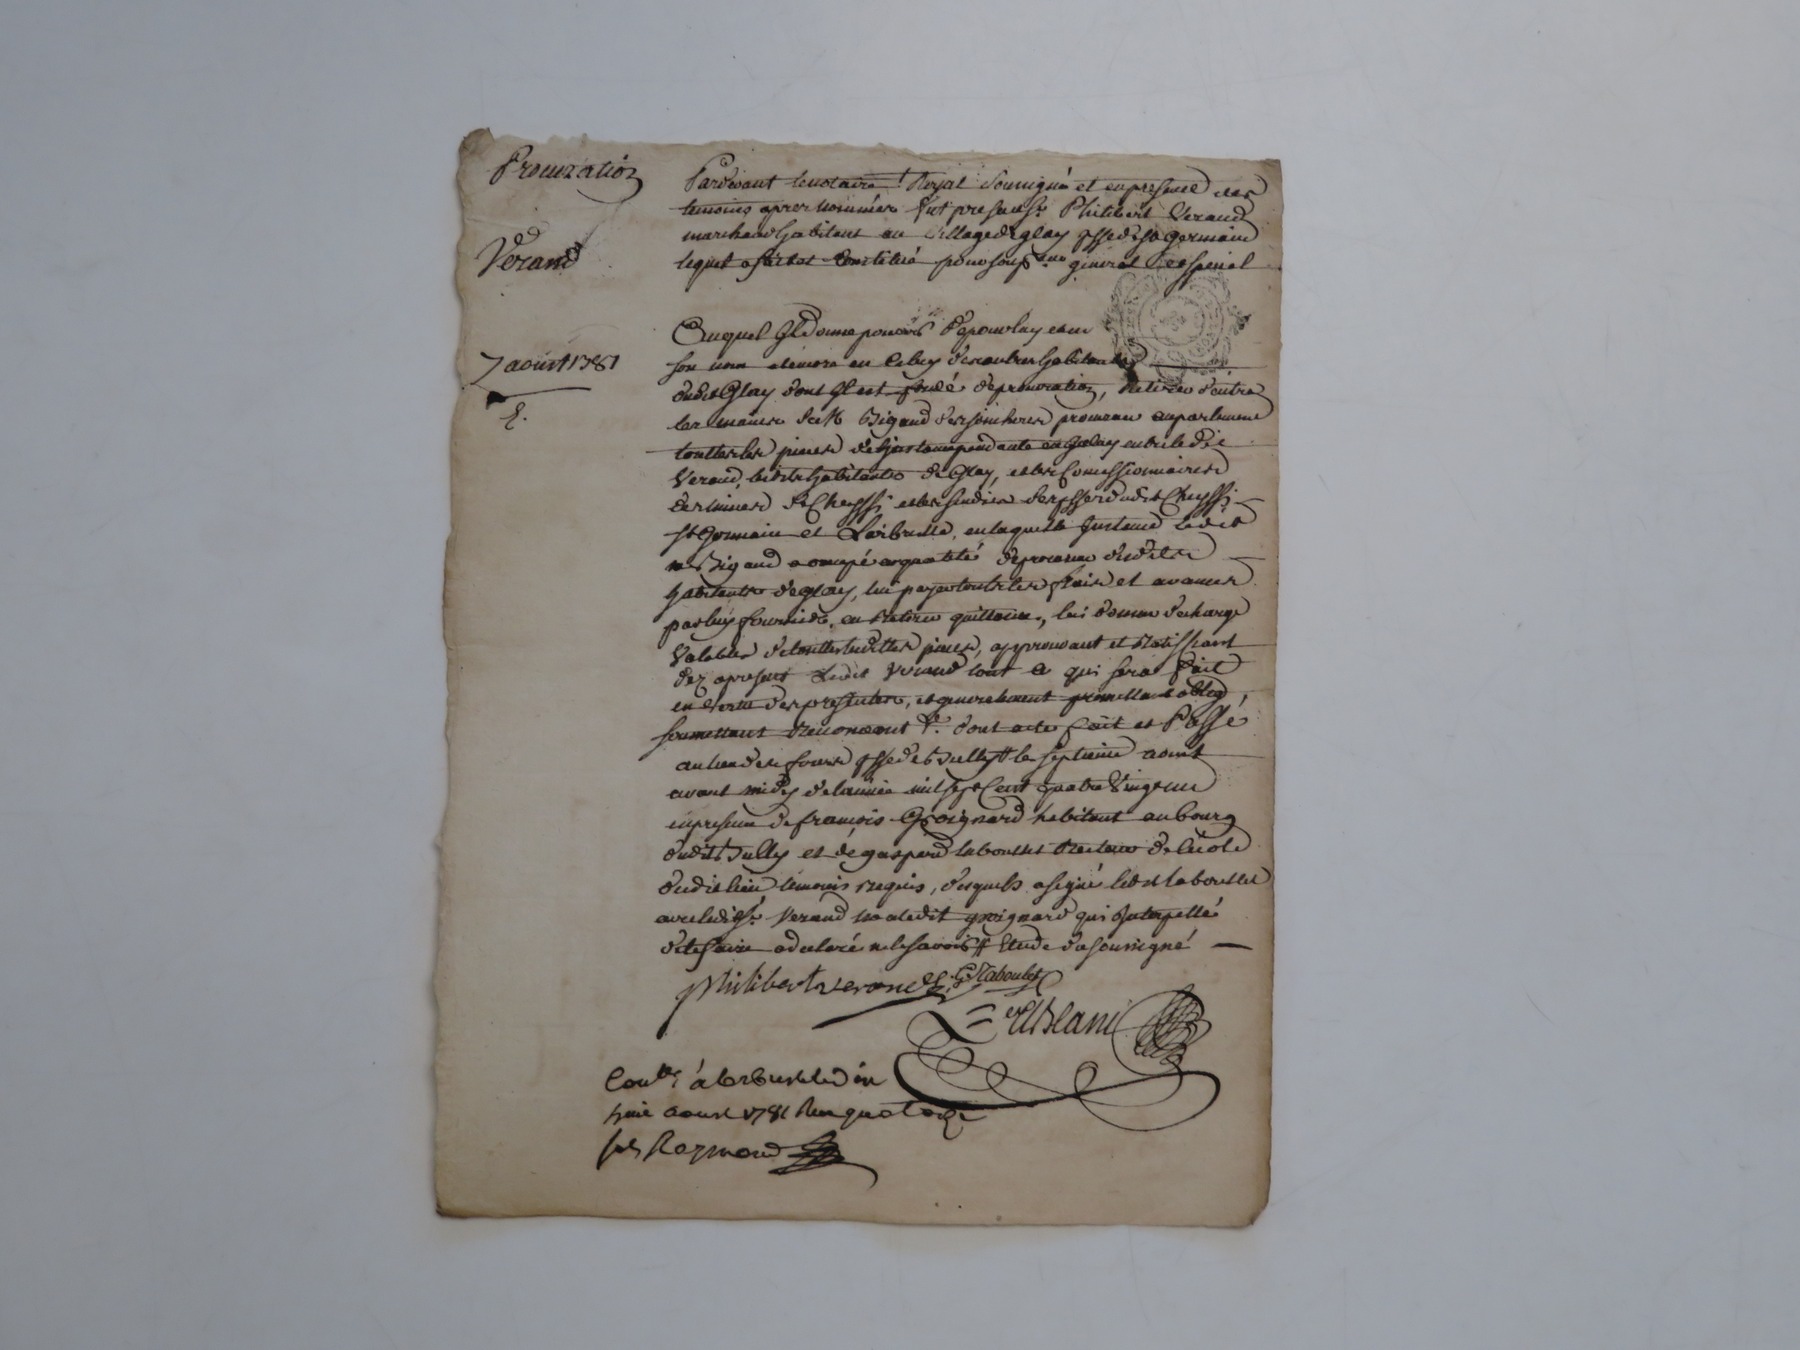 Procuration
Verand
7 aoûst 1781
Pardevant le notaire Royal soussigné et en presence des
temoins apres nommés fut present sr. Philibert Verand
marchand habitant au village de glay psse de st germain
lequel a fait et constitué pour son pr. general et special
Auquel Il donne pouvoir de pour luy et en
son nom et encore en celuy des autres habitants
dudit Glay dont Il est fondé de procuration, retirer d'entre
les mains de Me Rigaud procureur au parlement
touttes les pieces de l'instance pendante en icelluy entre ledit
Verand, les dits habitants de Glay, et les Concessionnaires
des mines de Cheyssi et les sindics des psses dudit Cheyssi
st Germain et L'arbresle, en laquelle Instance ledit
me Rigaud a occupé en qualité de procureur desdits
habitants de glay, lui payer touts les frais et avances
par luy fournis, en retirer quittance, lui donner decharge
valable de touttes lesdittes pieces, approuvant et ratiffiant
dez apresent Ledit Verand tout ce qui sera fait
en vertu des presentes, et generalement promettant oblig,
soumettant renonceant &. dont acte fait et Passé
au lieu des fours psse de st Jully le septieme aoust
avant midy de l'année mil sept Cent quatre Vingt un
en presence de françois Groignard habitant au bourg
dudit st Jully et de gaspard Laboulet recteur de l'ecole
dudit lieu temoins requis, desquels a signé ledit Laboulet
avec ledit sr. Verand non ledit groignard qui Interpellé
de le faire a declaré ne le savoir et de ce soussigné
Philibert Verand G. Laboulet
Conlle à larbresle le dix
huit aoust 1781 Reçu quatorze
sols Raymond